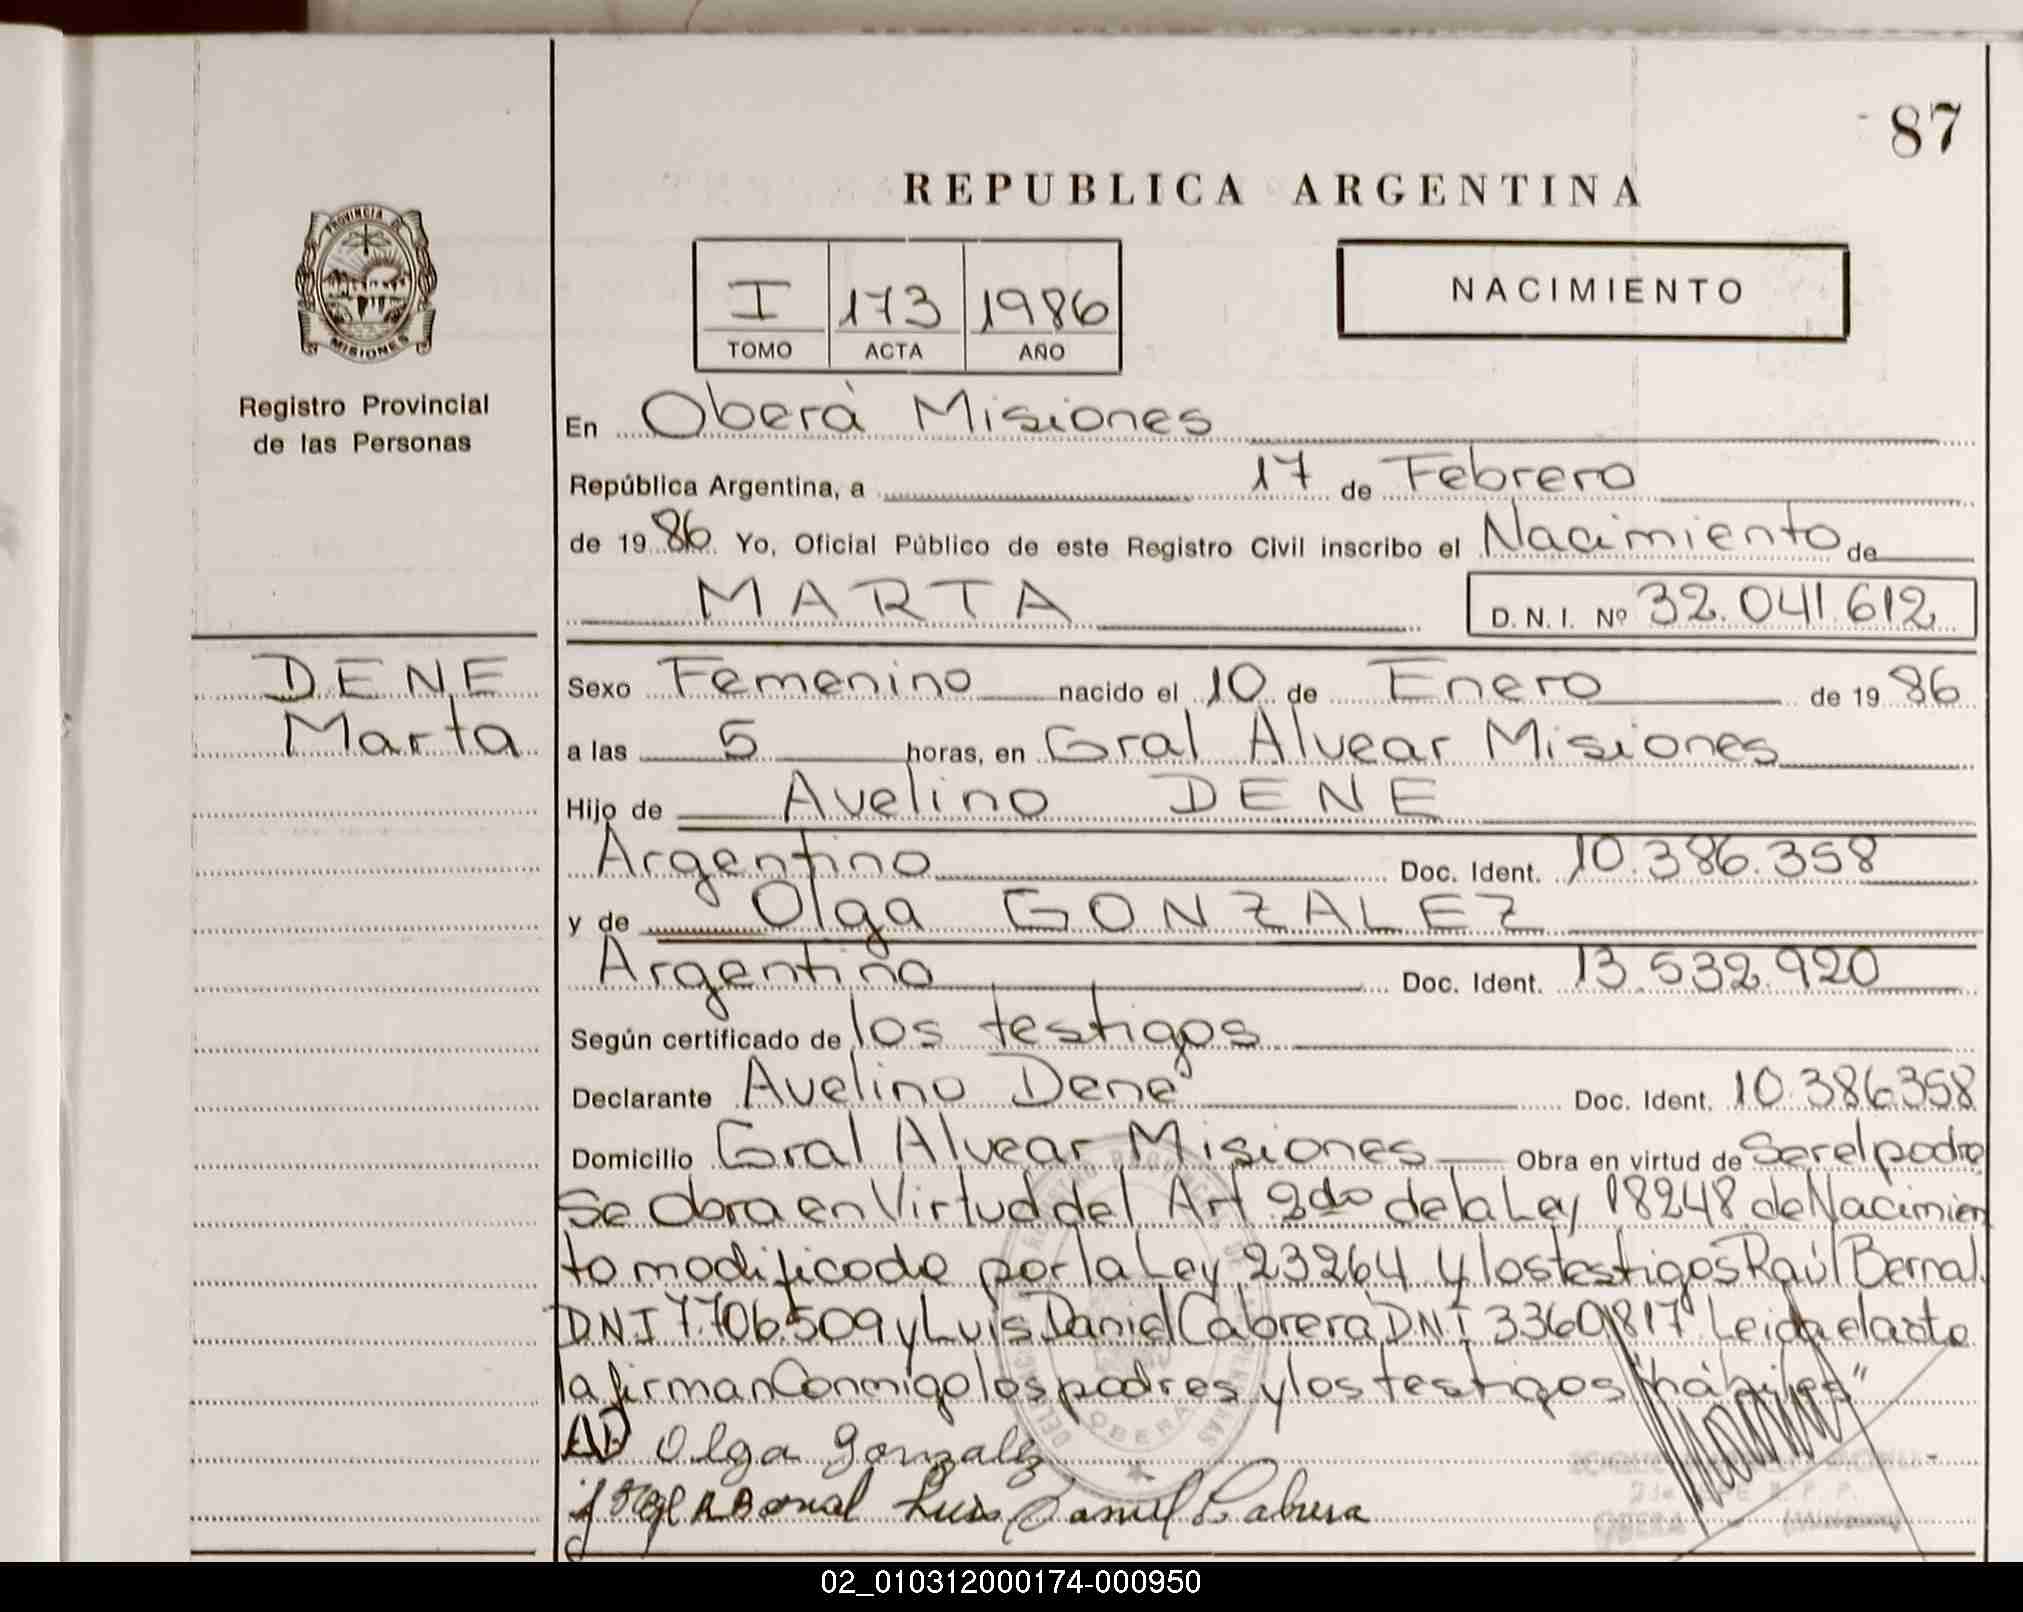 87
REPUBLICA ARGENTINA
PROVINCIA DE
MISIONES
Registro Provincial
de las Personas
I 173 1986
TOMO ACTA AÑO
NACIMIENTO
En Oberá Misiones
República Argentina, a 17 de Febrero
de 1986 Yo, Oficial Público de este Registro Civil inscribo el Nacimiento de
MARTA D. N. I. Nº 32.041.612
DENE
Marta
Sexo Femenino nacido el 10 de Enero de 1986
a las 5 horas, en Gral Alvear Misiones
Hijo de Avelino DENE
Argentino Doc. Ident. 10.386.358
y de Olga GONZALEZ
Argentina Doc. Ident. 13.532.920
Según certificado de los testigos
Declarante Avelino Dene Doc. Ident. 10.386358
Domicilio Gral Alvear Misiones Obra en virtud de Ser el padre
Se Obra en Virtud del Art 2do de la Ley 18248 de Nacimien
to modificado por la Ley 23264 y los testigos Raúl Bernal
DNI 7.706.509 y Luis Daniel Cabrera DNI 3360817 Leida el acta
la firman Conmigo los padres y los testigos "hábiles"
AD Olga Gonzalez
Bernal Luis Daniel Cabrera
OBERA
02_010312000174-000950